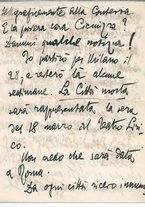 telegraficamente alla Contessa
E la povera cara Cicciuzza?
Dammi qualche notizia!
Io partirò per Milano il
28, e resterò là alcune
settimane. La Città morta
sarà rappresentata la sera
del 18 marzo al Teatro Liri-
co.
Non credo che sarà data
a Roma.
Da ogni città ricevo innum